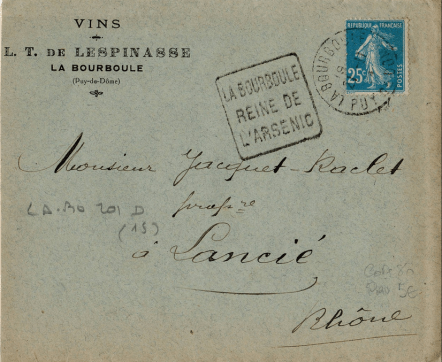 VINS
L. T. DE LESPINASSE
LA BOURBOULE
(Puy-de-Dôme)
LA BOURBOULE
REINE DE
L'ARSENIC
REPUBLIQUE FRANÇAISE
25c
POSTES
LA BOURBOULE
PUY
Monsieur Jacquet-Raclet
propre
à Lancié
Rhône
LA-BO 201 D
(15)
5€